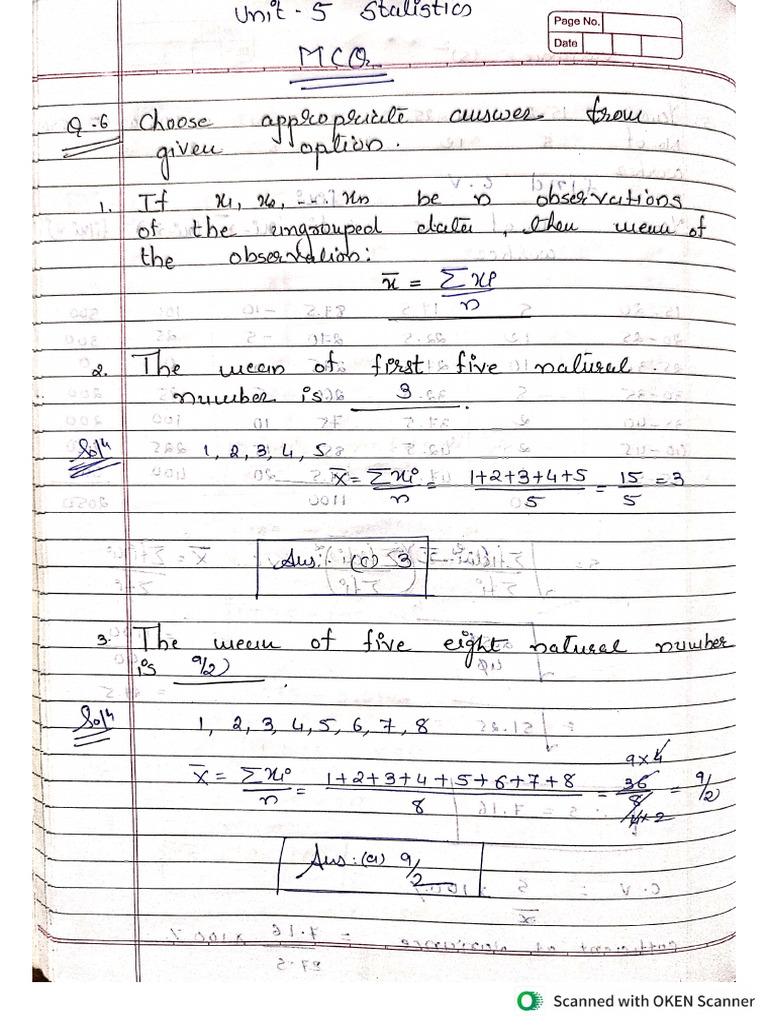 Unit - 5 Statistics
Page No.
Date
MCQ
Q.6 Choose appropriate answer from
given option.
1. If x1, x2, xn be n observations
of the ungrouped data, then mean of
the observation:
x̄ = Σxi/n
2. The mean of first five natural
number is 3.
Soln 1, 2, 3, 4, 5
x̄ = Σxi/n = 1+2+3+4+5/5 = 15/5 = 3
Ans: (c) 3
3. The mean of five eight natural number
is 9/2)
Soln 1, 2, 3, 4, 5, 6, 7, 8
x̄ = Σxi/n = 1+2+3+4+5+6+7+8/8 = 36/8 = 9/2
9x4
4x2
Ans: (a) 9/2
Scanned with OKEN Scanner